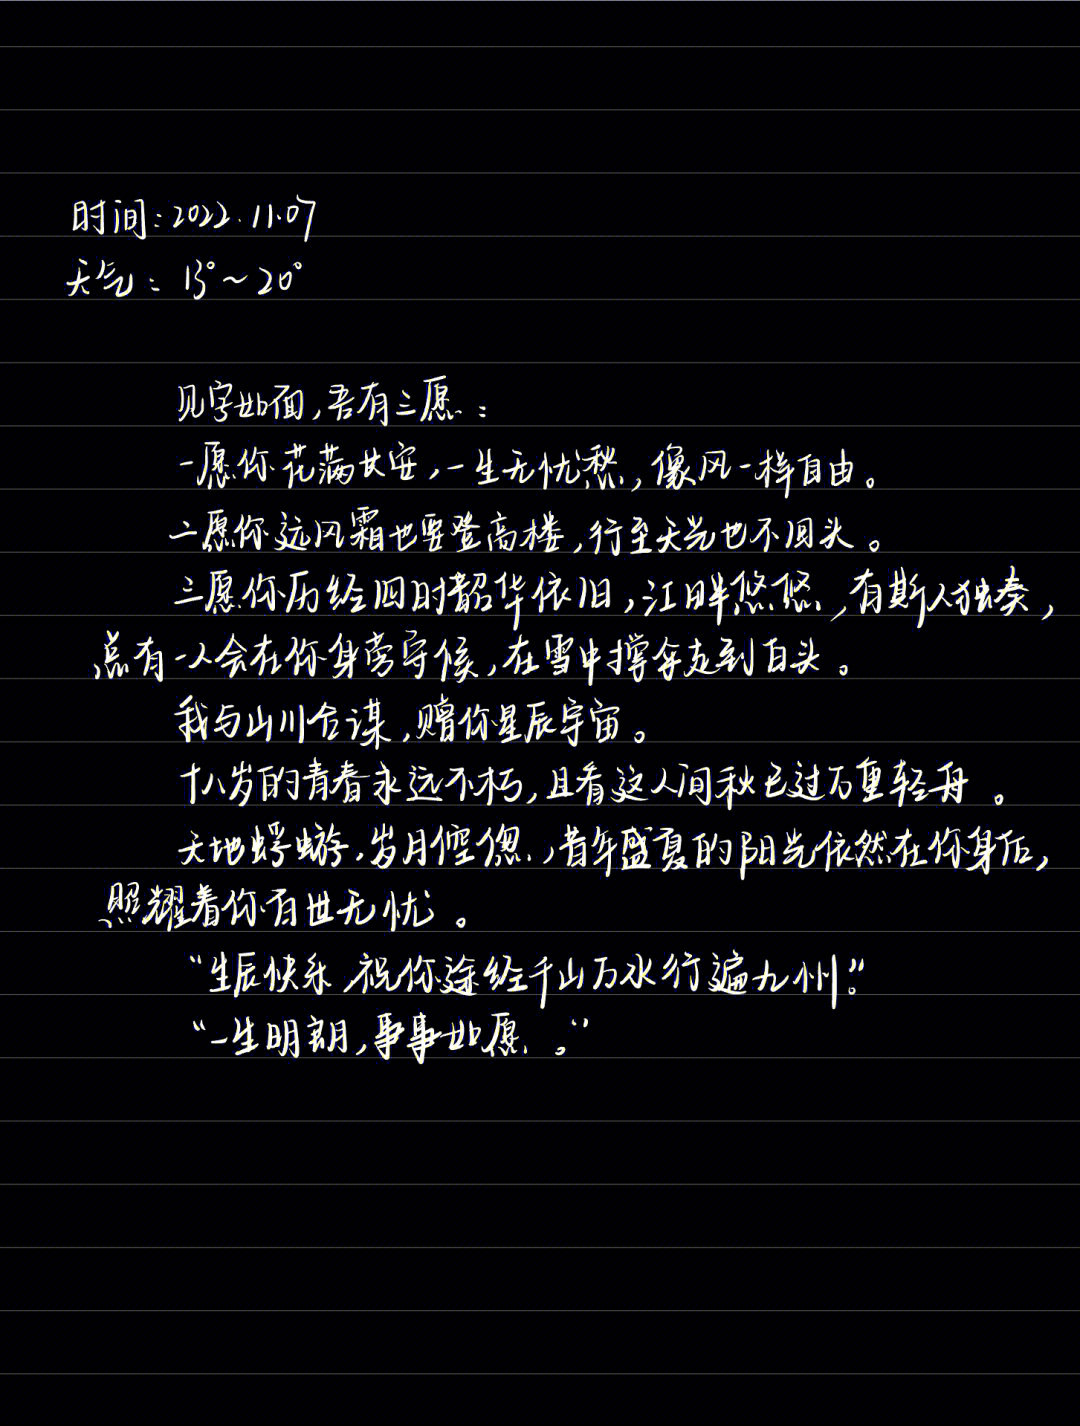 时间:2022.11.07
天气:13°~20°
见字如面,吾有三愿:
一愿你花满长安,一生无忧愁,像风一样自由。
二愿你远风霜也要登高楼,行至天光也不回头。
三愿你历经四时韶华依旧,江畔悠悠,有斯人独奏,
总有一人会在你身旁守候,在雪中撑伞走到白头。
我与山川合谋,赠你星辰宇宙。
十八岁的青春永远不朽,且看这人间秋已过万重轻舟。
天地蜉蝣,岁月倥偬,昔年盛夏的阳光依然在你身后,
照耀着你百世无忧。
“生辰快乐,祝你途经千山万水行遍九州。”
“一生明朗,事事如愿。”